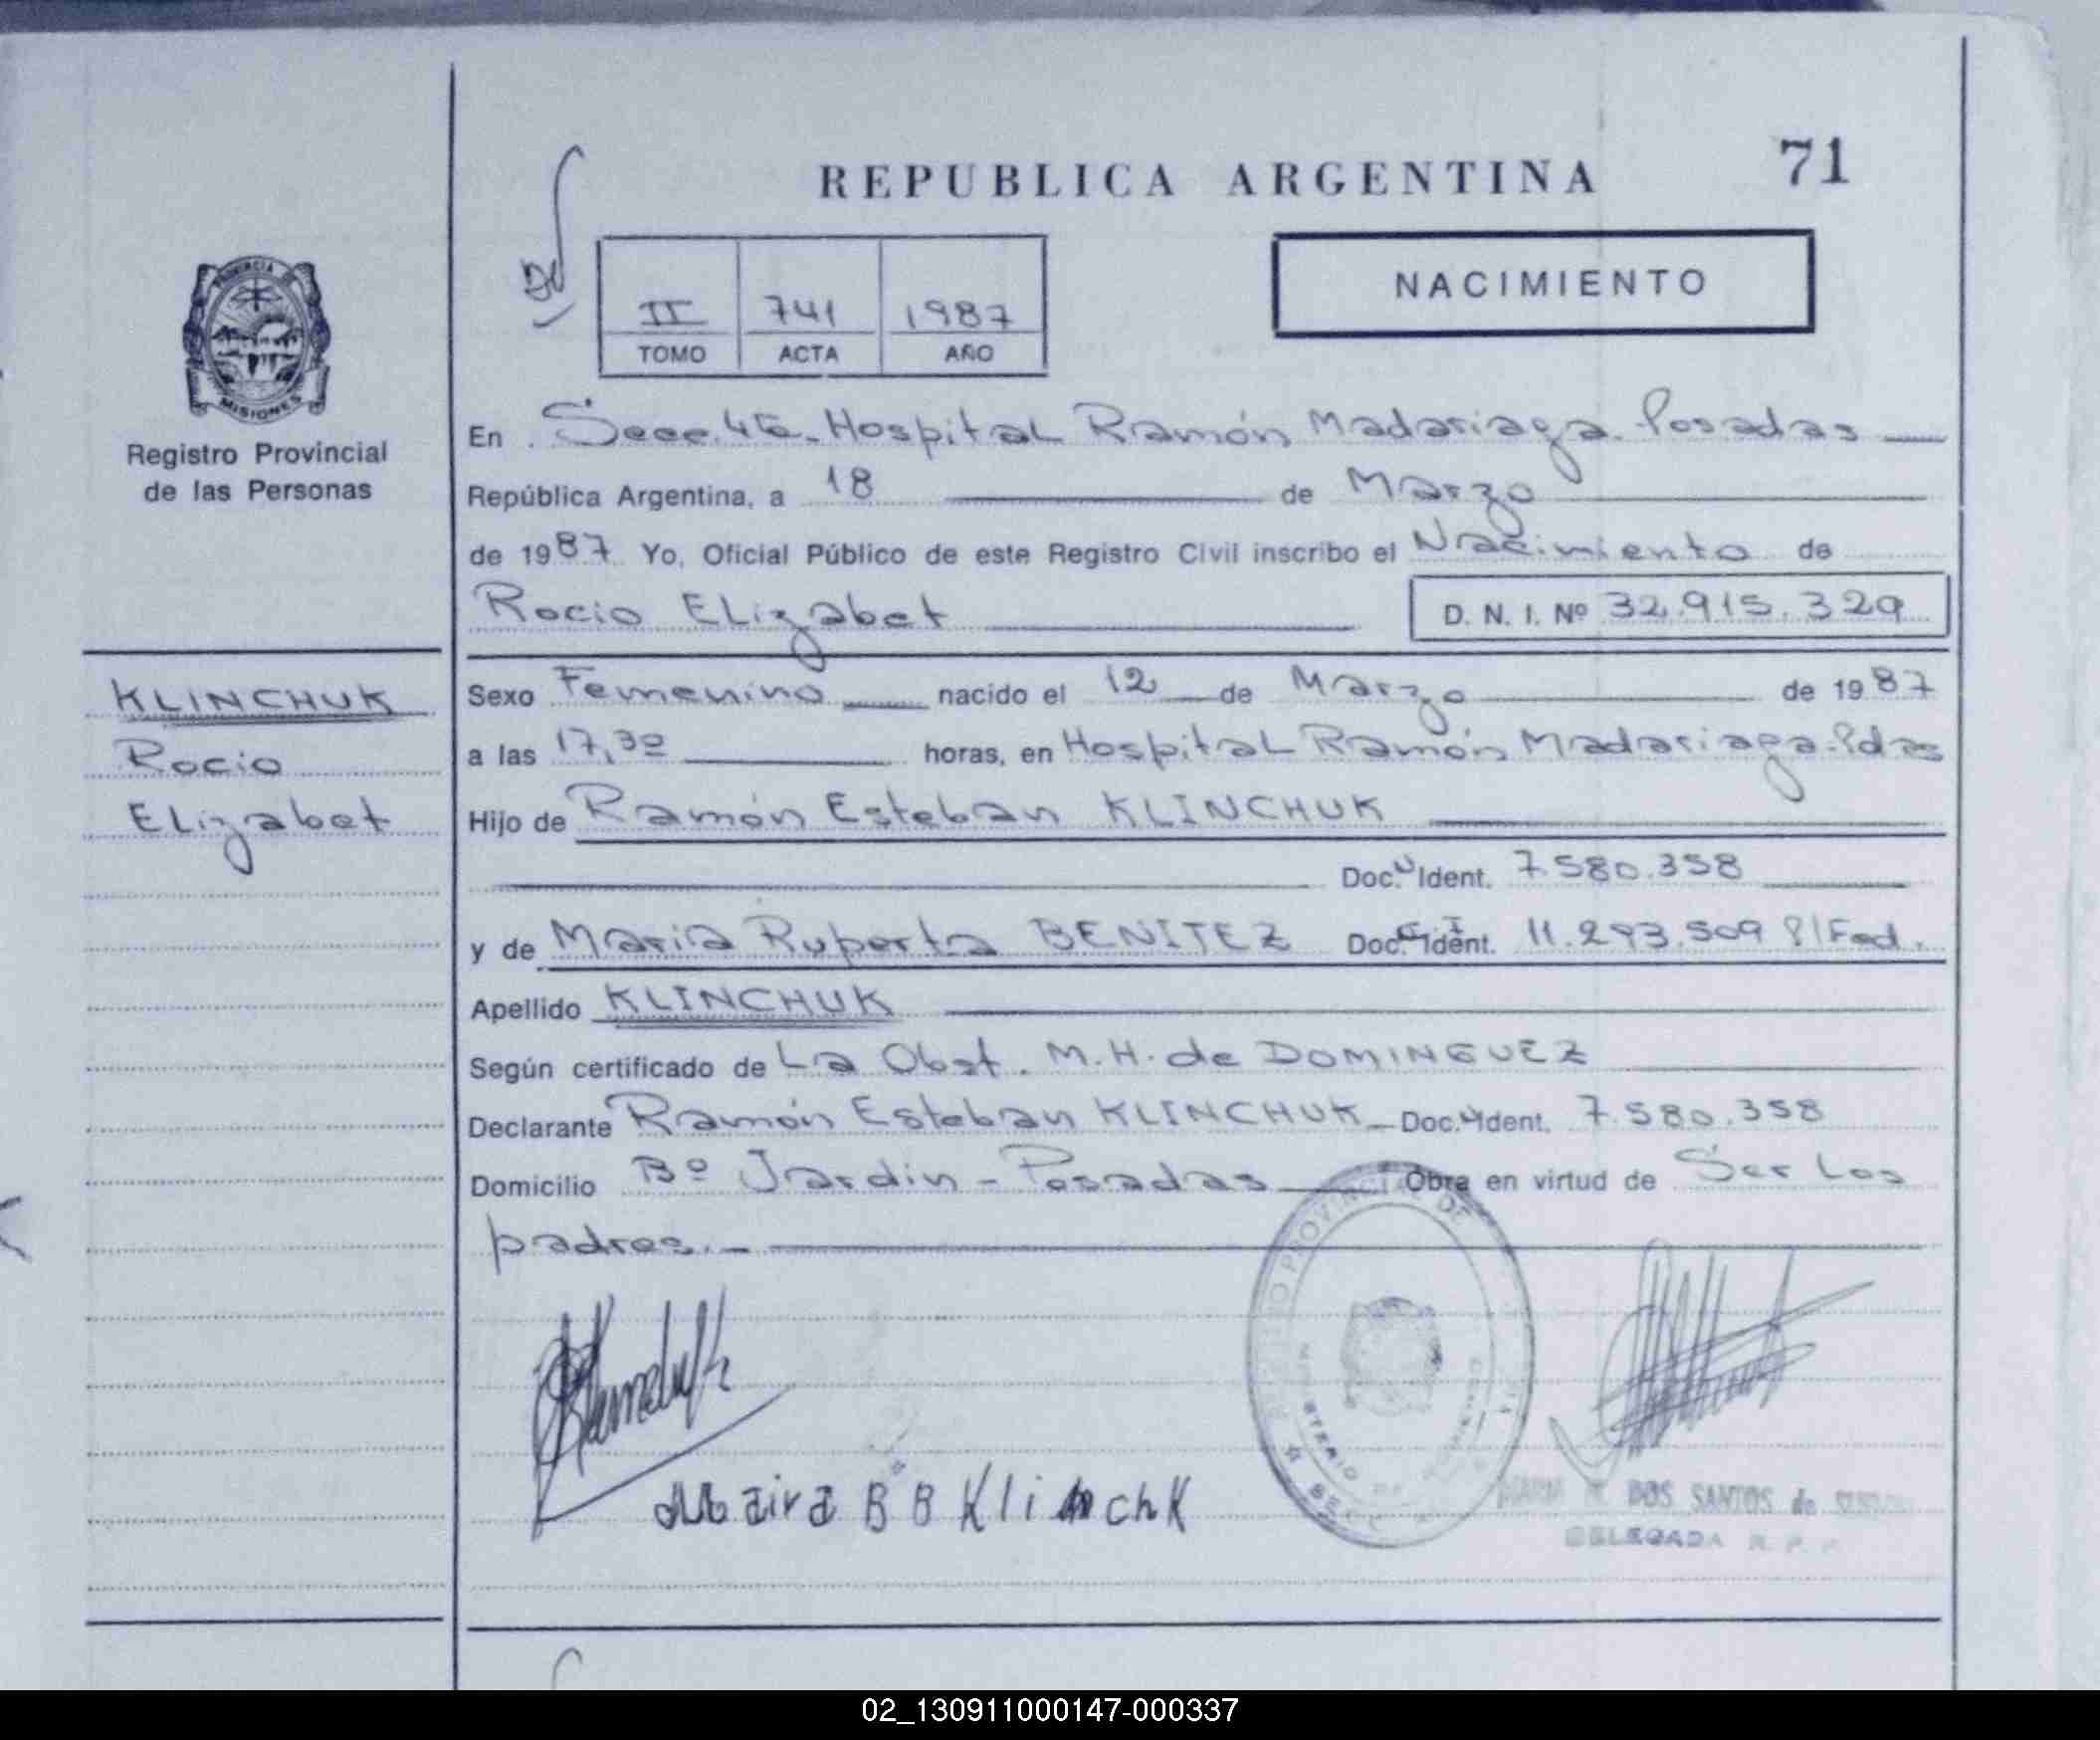 REPUBLICA ARGENTINA
71
NACIMIENTO
II 741 1987
TOMO ACTA AÑO
PROVINCIA DE
MISIONES
Registro Provincial
de las Personas
En Secc. 4ta. Hospital Ramón Madariaga. Posadas
República Argentina, a 18 de Marzo
de 1987 Yo, Oficial Público de este Registro Civil inscribo el Nacimiento de
Rocio Elizabet D. N. I. Nº 32.915.329
KLINCHUK
Rocio
Elizabet
Sexo Femenino nacido el 12 de Marzo de 1987
a las 17,30 horas, en Hospital Ramón Madariaga. Pdas
Hijo de Ramón Esteban KLINCHUK
Doc. Ident. 7.580.358
y de Maria Ruperta BENITEZ Doc. C.I Ident. 11.293.509 P/Fed.
Apellido KLINCHUK
Según certificado de La Obst. M. H. de DOMINGUEZ
Declarante Ramón Esteban KLINCHUK Doc. Ident. 7.580.358
Domicilio Bº Jardin - Posadas Obra en virtud de Ser Los
padres.
Maira B B KlinchK
DOS SANTOS de
DELEGADA R. P. P.
02_130911000147-000337